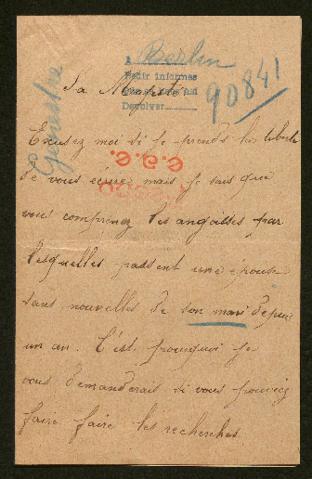 A Berlin
Pedir informes
Devolver
90841
Sa Majesté
Excusez moi si je prends la liberté
de vous écrire mais je sais que
vous comprenez les angoisses par
lesquelles passent une épouse
sans nouvelles de son mari depuis
un an. C'est pourquoi je
vous demanderait si vous pouviez
faire faire les recherches.